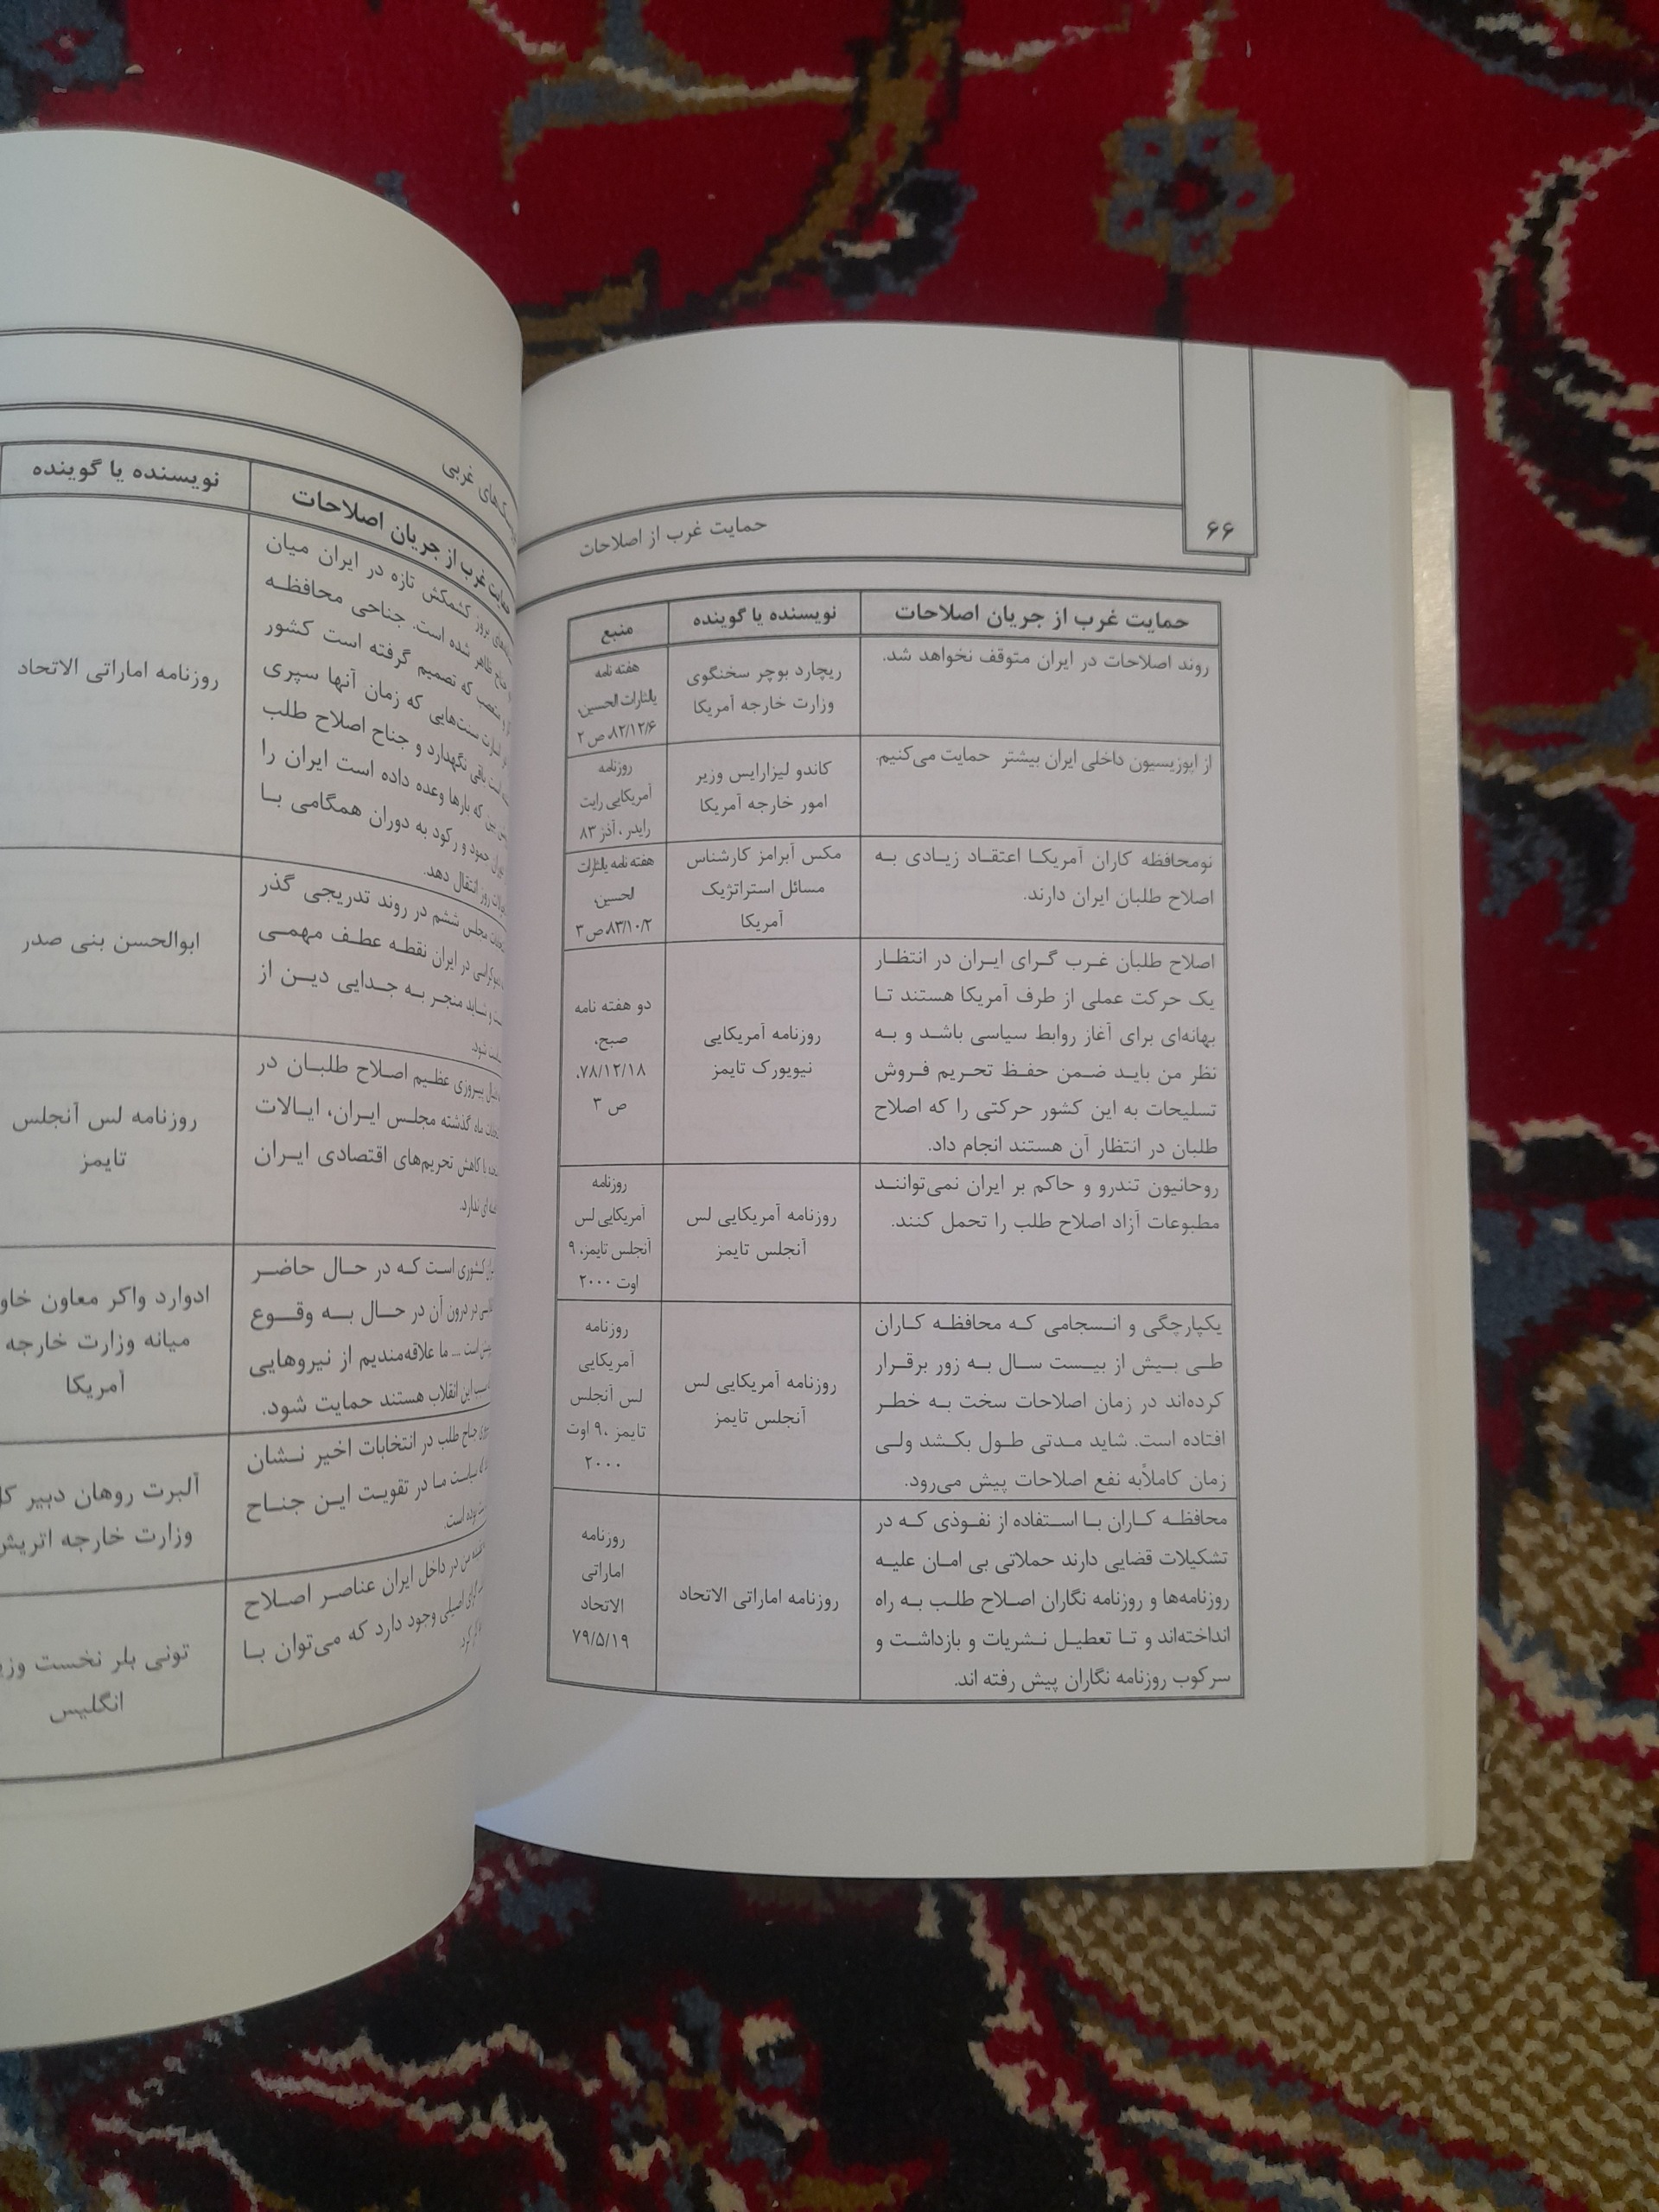 ۶۶
حمایت غرب از اصلاحات
حمایت غرب از جریان اصلاحات
نویسنده یا گوینده
منبع
روند اصلاحات در ایران متوقف نخواهد شد.
ریچارد بوچر سخنگوی
وزارت خارجه آمریکا
هفته نامه
یالثارات الحسین،
۸۲/۱۲/۶، ص ۲
از اپوزیسیون داخلی ایران بیشتر حمایت می‌کنیم.
کاندو لیزارایس وزیر
امور خارجه آمریکا
روزنامه
آمریکایی رایت
رایدر ، آذر ۸۳
نومحافظه کاران آمریکا اعتقاد زیادی به
اصلاح طلبان ایران دارند.
مکس آبرامز کارشناس
مسائل استراتژیک
آمریکا
هفته نامه یالثارات
الحسین،
۸۳/۱۰/۲، ص ۳
اصلاح طلبان غرب گرای ایران در انتظار
یک حرکت عملی از طرف آمریکا هستند تا
بهانه‌ای برای آغاز روابط سیاسی باشد و به
نظر من باید ضمن حفظ تحریم فروش
تسلیحات به این کشور حرکتی را که اصلاح
طلبان در انتظار آن هستند انجام داد.
روزنامه آمریکایی
نیویورک تایمز
دو هفته نامه
صبح،
۷۸/۱۲/۱۸،
ص ۳
روحانیون تندرو و حاکم بر ایران نمی‌توانند
مطبوعات آزاد اصلاح طلب را تحمل کنند.
روزنامه آمریکایی لس
آنجلس تایمز
روزنامه
آمریکایی لس
آنجلس تایمز، ۹
اوت ۲۰۰۰
یکپارچگی و انسجامی که محافظه کاران
طی بیش از بیست سال به زور برقرار
کرده‌اند در زمان اصلاحات سخت به خطر
افتاده است. شاید مدتی طول بکشد ولی
زمان کاملاًبه نفع اصلاحات پیش می‌رود.
روزنامه آمریکایی لس
آنجلس تایمز
روزنامه
آمریکایی
لس آنجلس
تایمز ،۹ اوت
۲۰۰۰
محافظه کاران با استفاده از نفوذی که در
تشکیلات قضایی دارند حملاتی بی امان علیه
روزنامه‌ها و روزنامه نگاران اصلاح طلب به راه
انداخته‌اند و تا تعطیل نشریات و بازداشت و
سرکوب روزنامه نگاران پیش رفته اند.
روزنامه اماراتی الاتحاد
روزنامه
اماراتی
الاتحاد
۷۹/۵/۱۹
غربی
حمایت غرب از جریان اصلاحات
نویسنده یا گوینده
بروز کشمکش تازه در ایران میان
ظاهر شده است. جناحی محافظه
متعصب که تصمیم گرفته است کشور
سنت‌هایی که زمان آنها سپری
است باقی نگهدارد و جناح اصلاح طلب
که بارها وعده داده است ایران را
جمود و رکود به دوران همگامی با
روز انتقال دهد.
روزنامه اماراتی الاتحاد
مجلس ششم در روند تدریجی گذر
در ایران نقطه عطف مهمی
و شاید منجر به جدایی دین از
شود.
ابوالحسن بنی صدر
پیروزی عظیم اصلاح طلبان در
ماه گذشته مجلس ایران، ایالات
با کاهش تحریم‌های اقتصادی ایران
ندارد.
روزنامه لس آنجلس
تایمز
کشوری است که در حال حاضر
در درون آن در حال به وقوع
است ... ما علاقه‌مندیم از نیروهایی
این انقلاب هستند حمایت شود.
ادوارد واکر معاون
میانه وزارت خارجه
آمریکا
جناح طلب در انتخابات اخیر نشان
سیاست ما در تقویت این جناح
بوده است.
آلبرت روهان دبیر
وزارت خارجه
من در داخل ایران عناصر اصلاح
اصیلی وجود دارد که می‌توان با
تونی بلر نخست
انگلیس